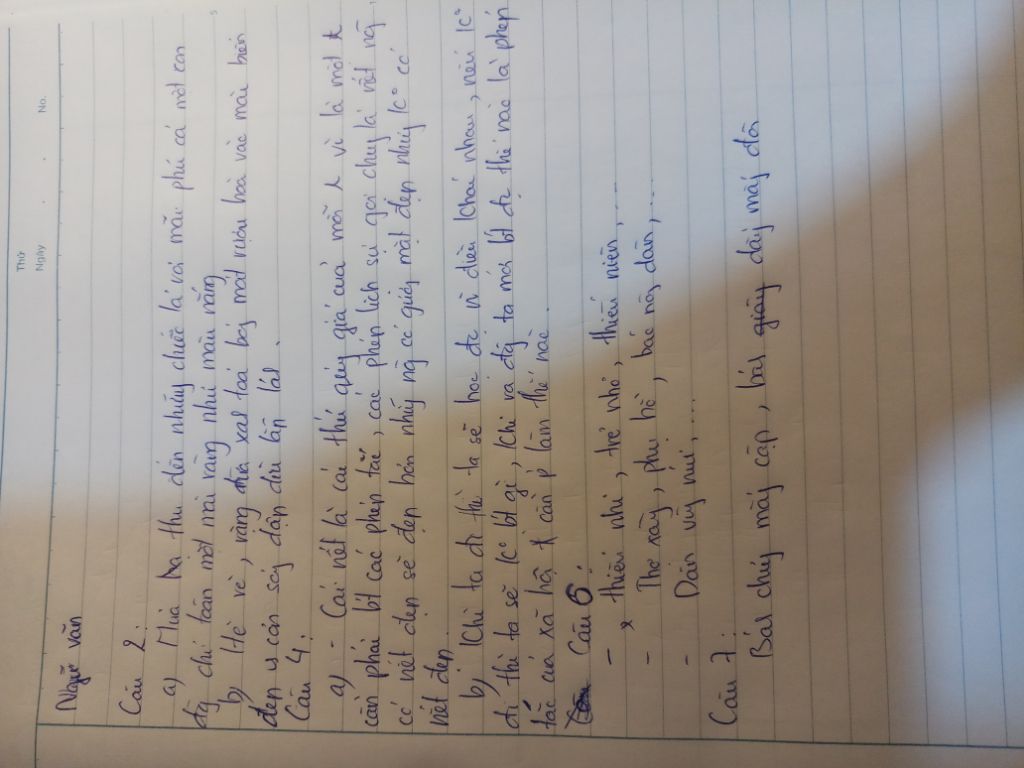 Thứ
Ngày
No.
Ngữ văn
Câu 2:
a) Mùa thu đến những chiếc lá và màu phủ cả một con
đg chỉ toàn một màu vàng như màu nắng
b) Hè về, vàng xoá bóng mát rượu hoà vào màu biển
đẹp vs còn sóng dập dìu lấp lá.
Câu 4:
a) - Cái nết là cái thứ qúy giá của mỗi vì là một
cần phải bt các phép tắc, các phép lịch sử gọi chug là nét ng
có nét đẹp sẽ đẹp hơn nhữg ng có gươg mặt đẹp nhưg ko có
nết đẹp.
b) Khi ta đi thì ta sẽ học đc vì điều khác nhau, nếu ko
đi thì ta sẽ ko bt gì, khi ra đg ta mới bt đc thế nào là phép
tắc của xã hội cần p làm thế nào.
Câu 6:
- thiếu nhi, trẻ nhỏ, thiếu niên, ...
- Thợ xây, phụ hồ, bác nôg dân, ...
- Dân vùg núi, ...
Câu 7:
Bài chúg mấy cặp, bài giầy dây mấy đôi